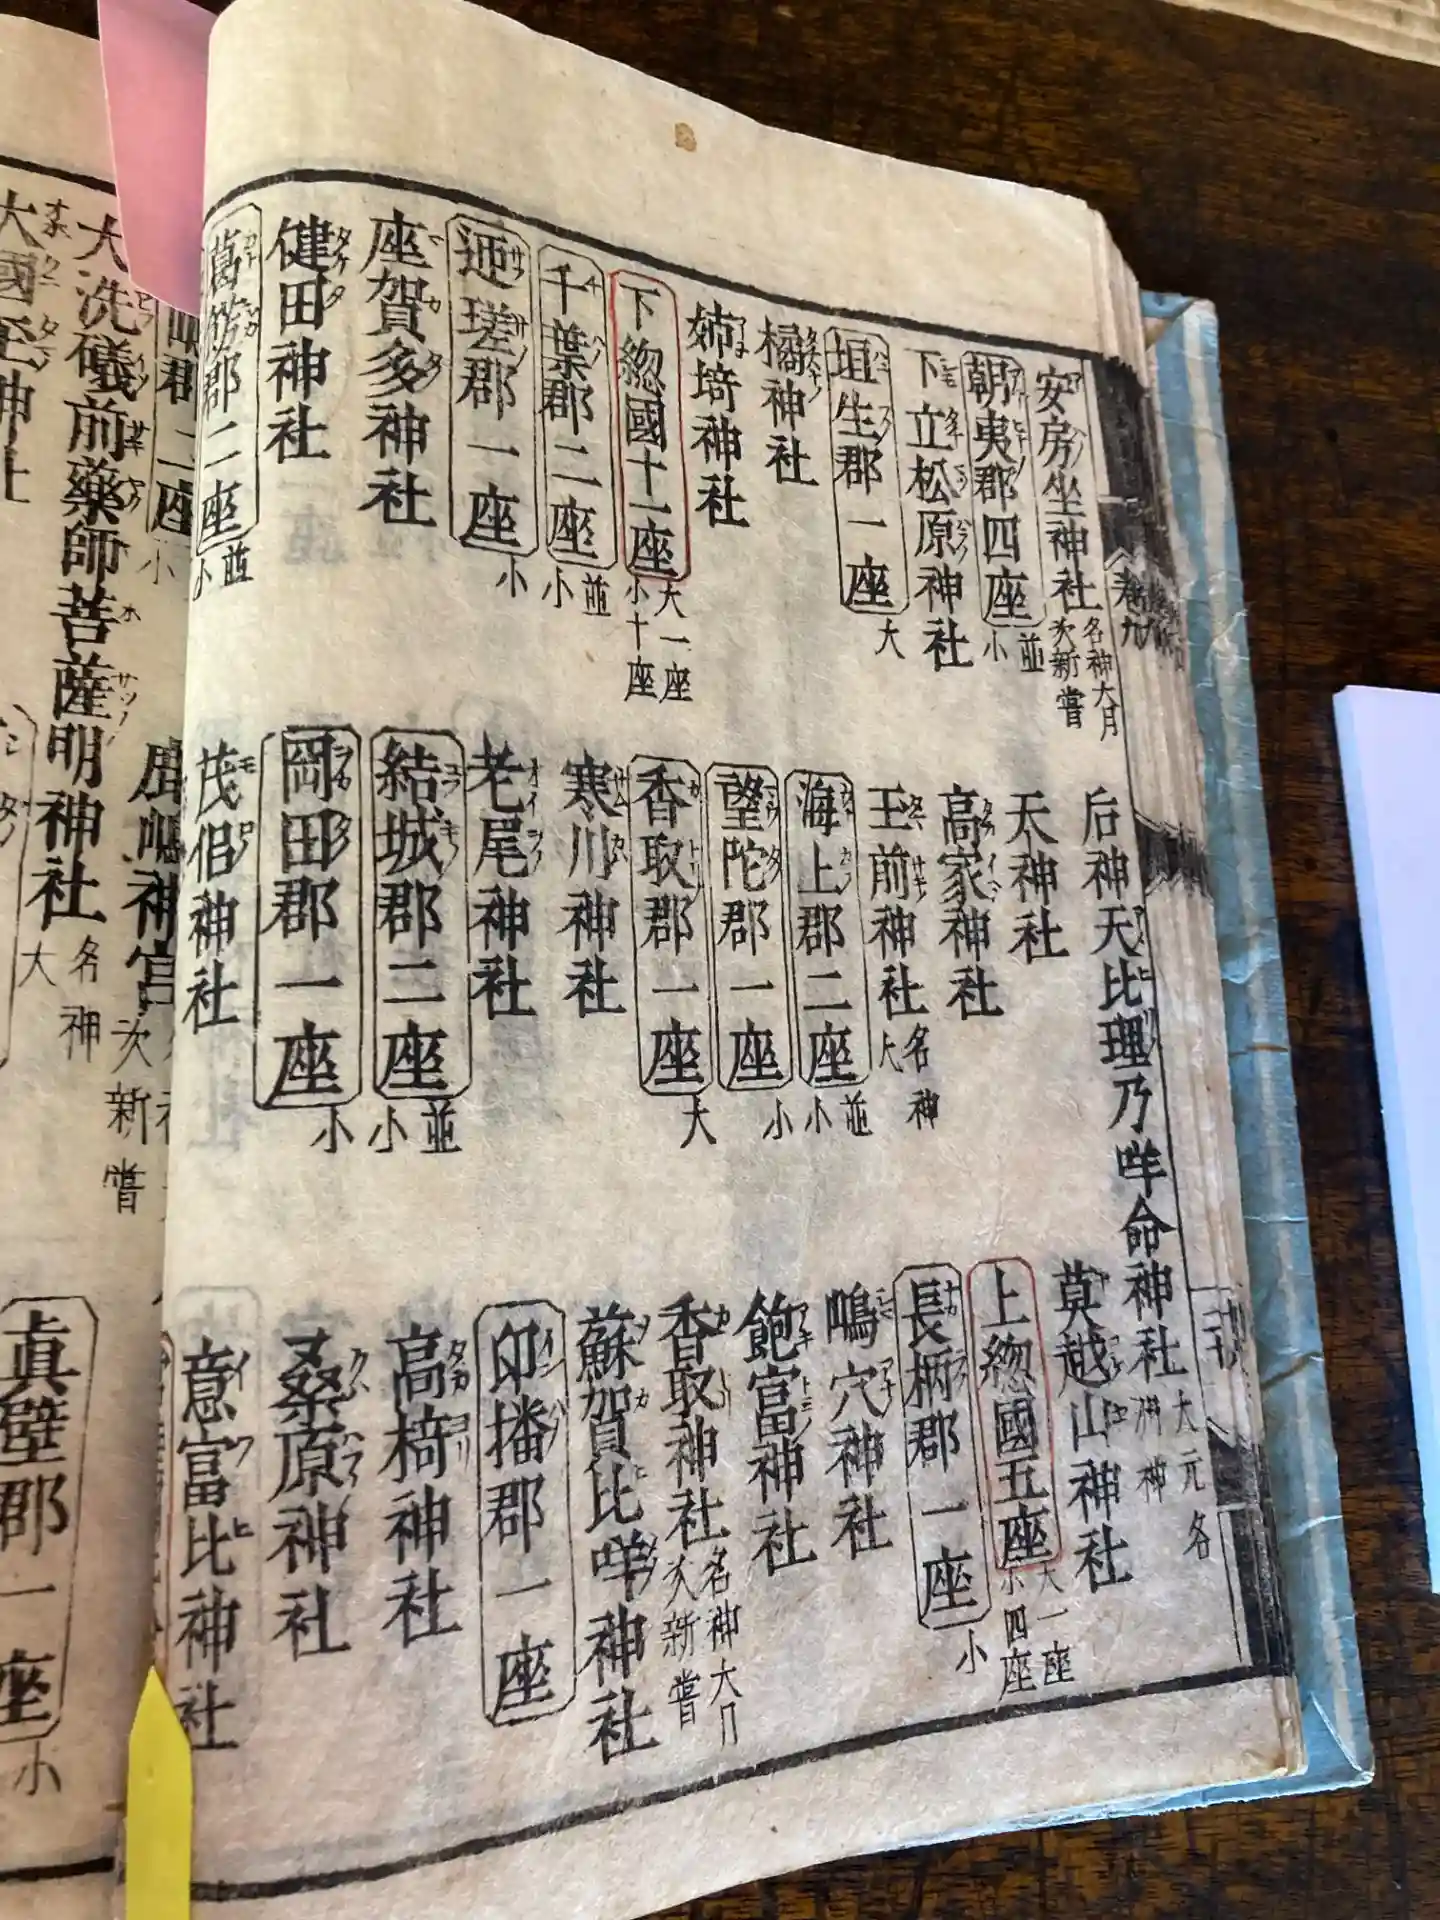 安房坐神社 名神大月次新嘗 后神天比理乃咩命神社 大元名洲神
朝夷郡四座 並小 天神社 莫越山神社
下立松原神社 高家神社 上緫國五座 大一座小四座
埴生郡一座 大 玉前神社 名神大 長柄郡一座 小
橘神社 海上郡二座 並小 嶋穴神社
姉埼神社 望陀郡一座 小 飽富神社
下緫國十一座 大一座小十座 香取郡一座 大 香取神社 名神大月次新嘗
千葉郡二座 並小 寒川神社 蘇賀比咩神社
迊瑳郡一座 小 老尾神社 印播郡一座
座賀多神社 結城郡二座 並小 高椅神社
健田神社 岡田郡一座 小 桑原神社
葛餝郡二座 並小 茂侶神社 意富比神社
郡二座 小 鹿嶋神宮 次新嘗
大洗礒前藥師菩薩明神社 名神大
大國玉神社 眞壁郡一座 小